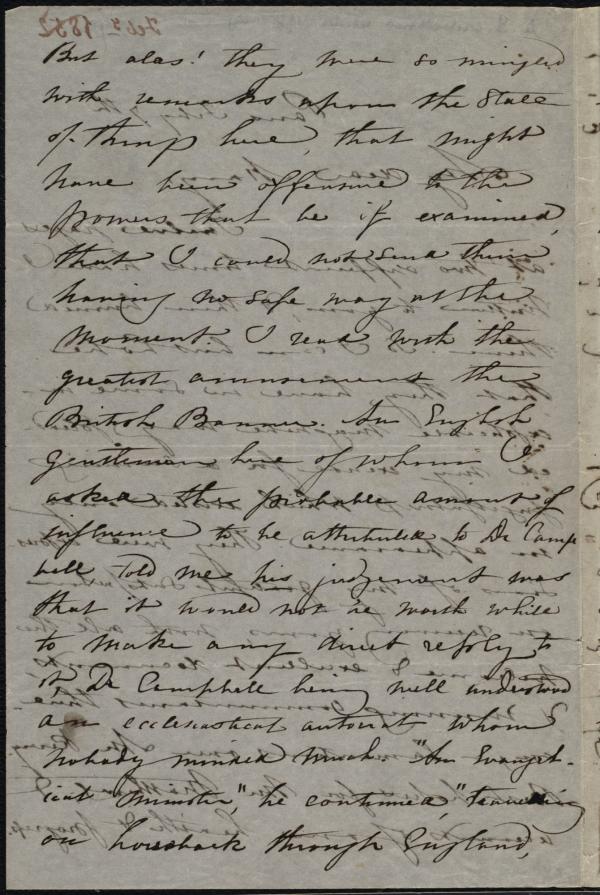 But alas! they were so mingled
with remarks upon the State
of things here, that might
have been offensive to the
powers that be if examined,
that I could not send them
having no safe way at the
moment. I read with the
greatest amusement the
British Banner. An English
gentleman here of whom I
asked the probable amount of
influence to be attributed to Dr Camp
bell told me his judgement was
that it would not be worth while
to make any direct reply to
it, Dr Campbell being well understood
an ecclesiastical autocrat whom
nobody minded much. "An Evangel-
ical Minister," he continued, "travelling
on horseback through England,